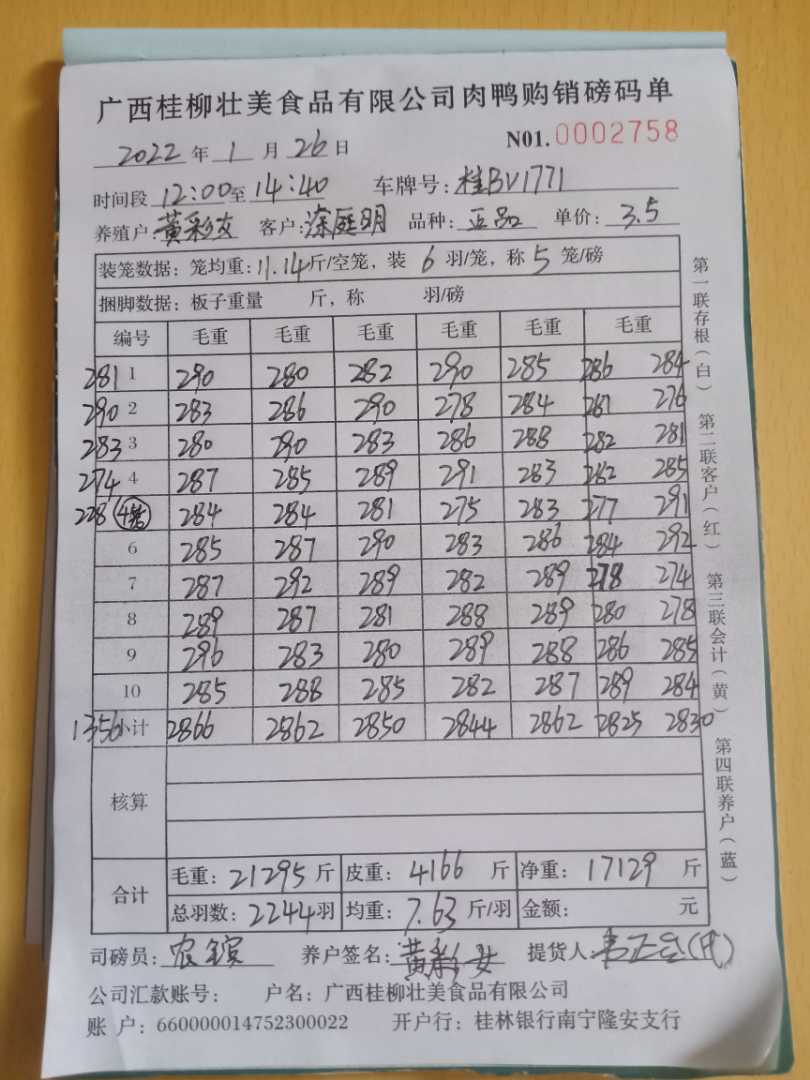 广西桂柳壮美食品有限公司肉鸭购销磅码单
2022 年 1 月 26 日 N01. 0002758
时间段 12:00 至 14:40 车牌号: 桂BV1771
养殖户: 黄彩友 客户: 涂庭明 品种: 正品 单价: 3.5
装笼数据: 笼均重: 11.14 斤/空笼, 装 6 羽/笼, 称 5 笼/磅
捆脚数据: 板子重量 斤, 称 羽/磅
编号 毛重 毛重 毛重 毛重 毛重 毛重
281 1 290 280 282 290 285 286 284
290 2 283 286 290 278 284 281 276
283 3 280 290 283 286 288 282 281
274 4 287 285 289 291 283 282 285
228 284 284 281 275 283 277 291
6 285 287 290 283 286 284 292
7 287 292 289 282 289 278 274
8 289 287 281 288 289 280 278
9 296 283 280 289 288 286 285
10 285 288 285 282 287 289 284
1356 小计 2866 2862 2850 2844 2862 2825 2830
核算
合计
毛重: 21295 斤 皮重: 4166 斤 净重: 17129 斤
总羽数: 2244 羽 均重: 7.63 斤/羽 金额: 元
司磅员: 养户签名: 提货人:
公司汇款账号: 户名: 广西桂柳壮美食品有限公司
账 户: 660000014752300022 开户行: 桂林银行南宁隆安支行
第一联存根(白)
第二联客户(红)
第三联会计(黄)
第四联养户(蓝)